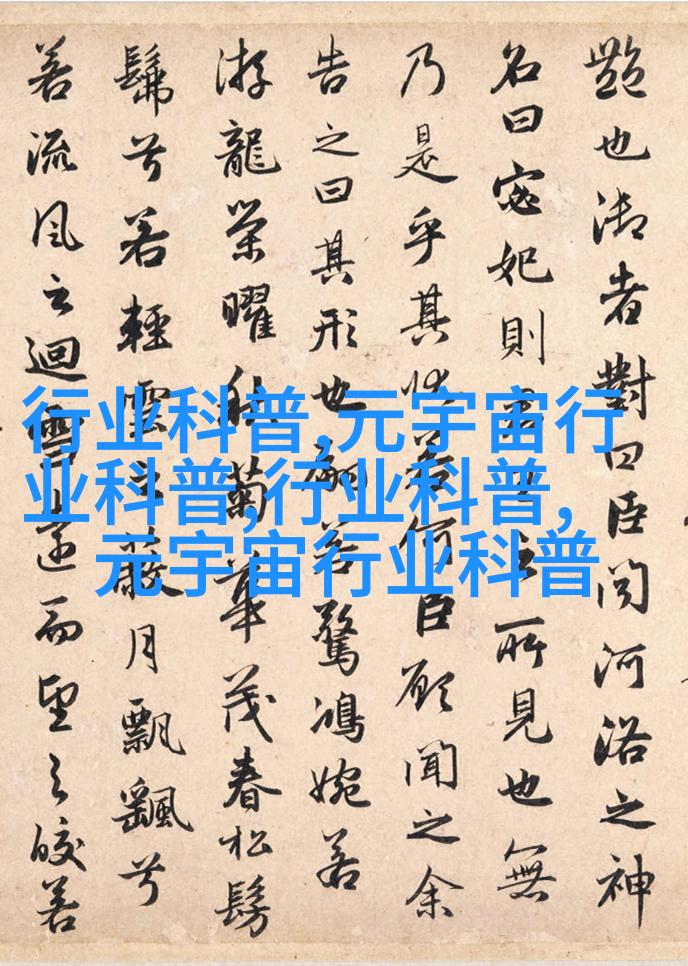 艷也御者對曰臣聞河洛之神
名曰宓妃則所見也無
乃是乎其狀若何臣願聞之余
告之曰其形也翩若驚鴻婉若
游龍榮曜秋菊華茂春松髣
髴兮若輕雲之蔽月飄颻兮
若流風之迴雪遠而望之皎若
行业科普,元宇宙行
业科普,行业科普,
元宇宙行业科普